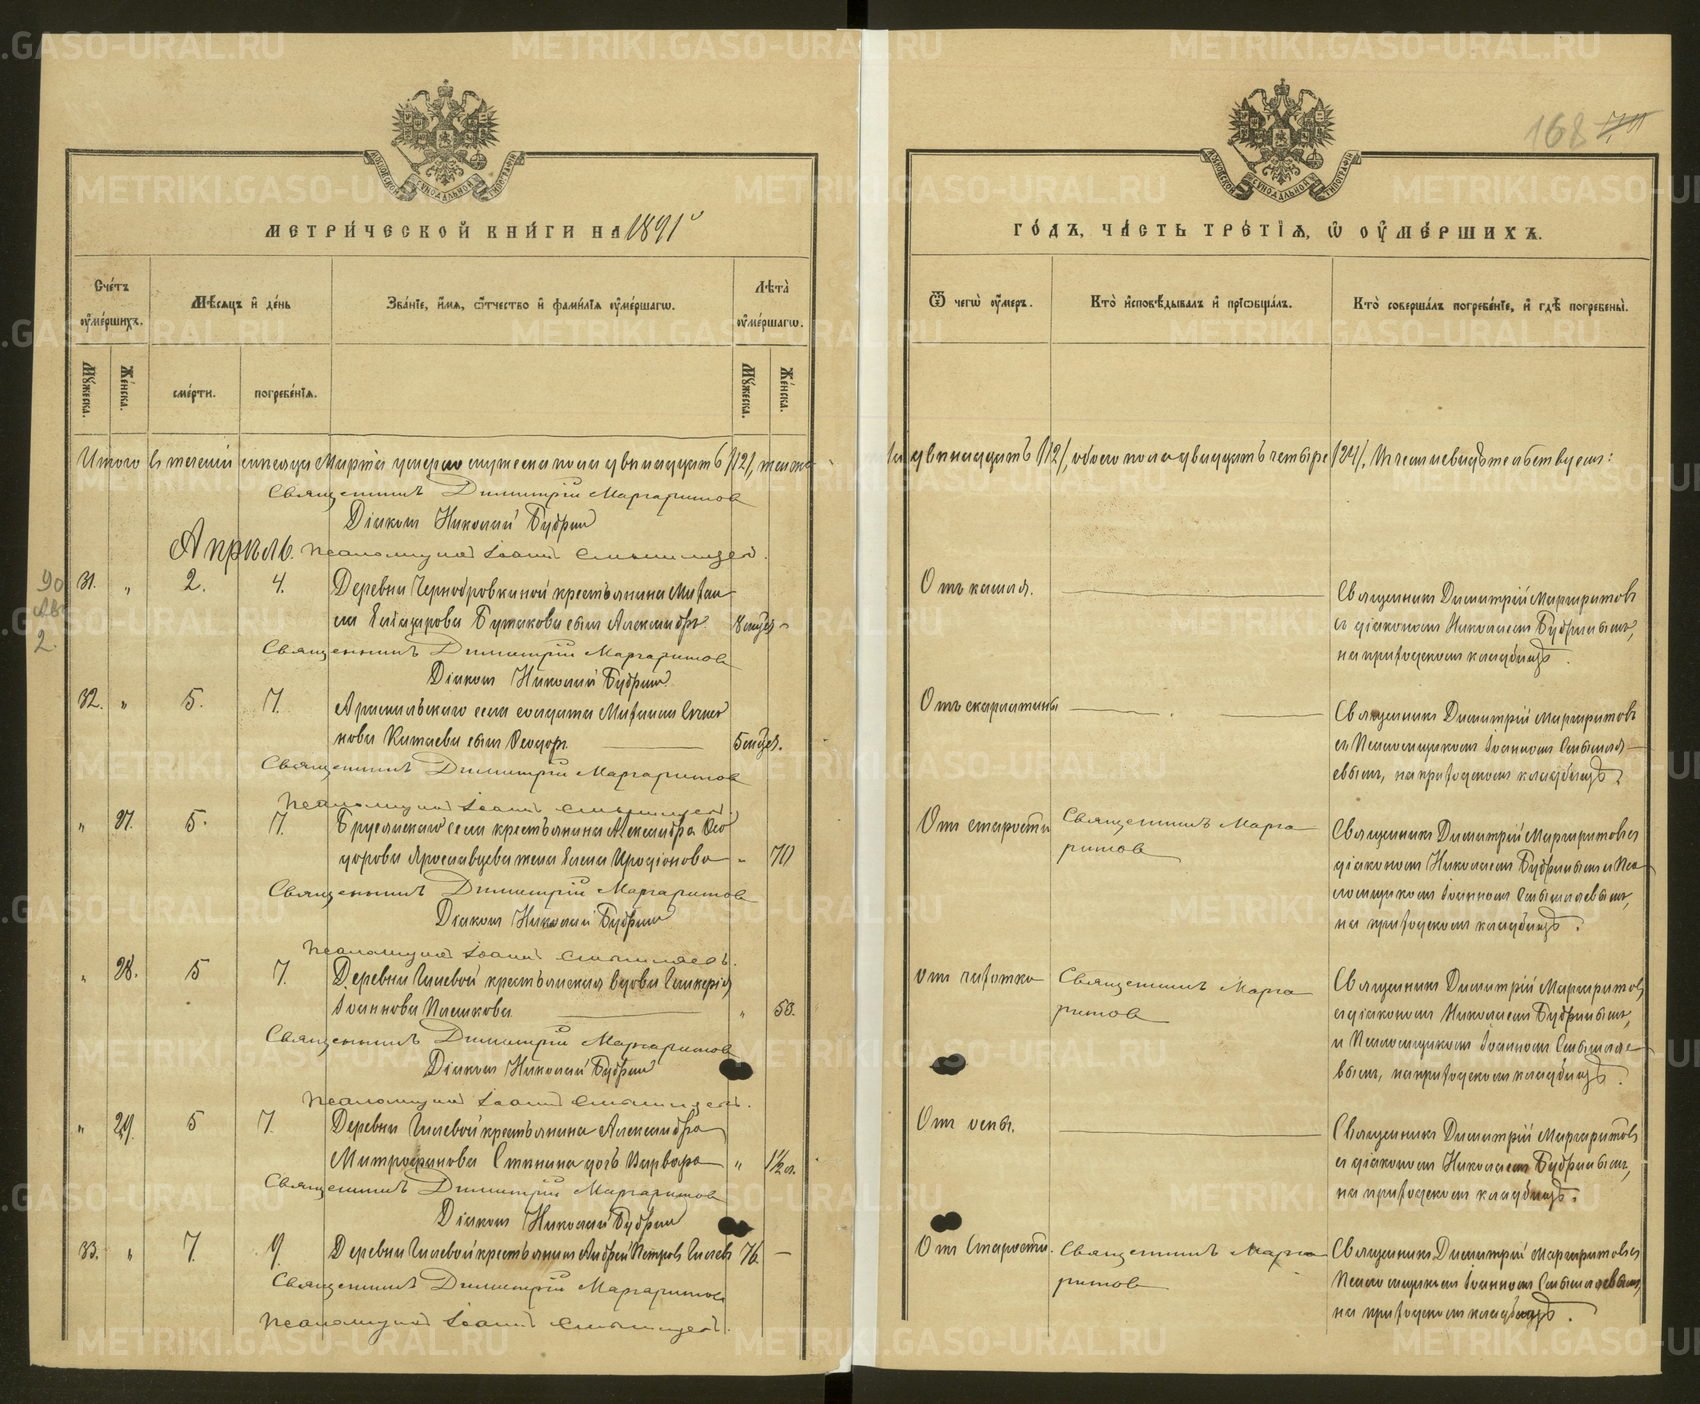 МЕТРИ́ЧЕСКОЙ КНИ́ГИ НА 1891
Сче́тъ ᲂу҆ме́ршихъ.
Мѣ́сяцъ и҆ де́нь
Зва́нїе, и҆́мя, ѻ҆́тчество и҆ фами́лїя ᲂу҆ме́ршагѡ.
Лѣ́та ᲂу҆ме́ршагѡ.
Мꙋ́жеска.
Же́нска.
сме́рти.
погребе́нїѧ.
Мꙋ́жеска.
Же́нска.
Итого въ течении месяца Марта умерло мужеска пола двенадцать /12/, женска
Священникъ Димитрій Маргаритовъ
Діаконъ Николай Бубринъ
Апрѣль.
Псаломщикъ Іоаннъ
31. " 2. 4. Деревни Чернобровкиной крестьянина Михаи
ла Елиазарова Бутакова сынъ Александръ 8 мѣся
Священникъ Димитрій Маргаритовъ
Діаконъ Николай Бубринъ
32. " 5. 7. Арамильскаго села солдата Михаила
нова Китаева сынъ Ѳеодоръ 5 мѣся.
Священникъ Димитрій Маргаритовъ
Псаломщикъ Іоаннъ
" 27. 5. 7. Бруснянскаго села крестьянина Александра Ѳео
дорова Ярославцева жена Елена Иродіонова " 70
Священникъ Димитрій Маргаритовъ
Діаконъ Николай Бубринъ
Псаломщикъ Іоаннъ
" 28. 5 7. Деревни Гилевой крестьянская вдова Гликерія
Іоаннова Пашкова " 53.
Священникъ Димитрій Маргаритовъ
Діаконъ Николай Бубринъ
Псаломщикъ Іоаннъ
" 29. 5 7. Деревни Гилевой крестьянина Александра
Митрофанова Стинина дочь Варвара " 1½ г.
Священникъ Димитрій Маргаритовъ
Діаконъ Николай Бубринъ
33. " 7. 9. Деревни Гилевой крестьянинъ Андрей Петровъ Гилевъ 76. —
Священникъ Димитрій Маргаритовъ
Псаломщикъ Іоаннъ
90
2.
168
ГО́ДЪ, ЧА́СТЬ ТРЕ́ТЇѦ, Ѡ҆ ОУ҆МЕ́РШИХЪ.
Ѿ чегѡ̀ ᲂу҆́меръ.
Кто̀ и҆сповѣ́дывалъ и҆ прїѡбща́лъ.
Кто̀ соверша́лъ погребе́нїе, и҆ гдѣ̀ погребены̀.
двенадцать /12/, обоего пола двадцать четыре /24/. Въ чемъ и свидѣтельствуемъ:
Отъ кашля.
Священникъ Димитрій Маргаритовъ
съ діакономъ Николаемъ Бубринымъ,
на приходскомъ кладбищѣ.
Отъ скарлатины
Священникъ Димитрій Маргаритовъ
съ Псаломщикомъ Іоанномъ
на приходскомъ кладбищѣ.
Отъ старости
Священникъ Марга
ритовъ
Священникъ Димитрій Маргаритовъ съ
діакономъ Николаемъ Бубринымъ и Пса
ломщикомъ Іоанномъ
на приходскомъ кладбищѣ.
отъ чахотки
Священникъ Марга
ритовъ
Священникъ Димитрій Маргаритовъ
съ діакономъ Николаемъ Бубринымъ,
и Псаломщикомъ Іоанномъ
на приходскомъ кладбищѣ.
Отъ оспы.
Священникъ Димитрій Маргаритовъ
съ діакономъ Николаемъ Бубринымъ,
на приходскомъ кладбищѣ.
Отъ Старости.
Священникъ Марга
ритовъ
Священникъ Димитрій Маргаритовъ съ
Псаломщикомъ Іоанномъ
на приходскомъ кладбищѣ.
METRIKI.GASO-URAL.RU